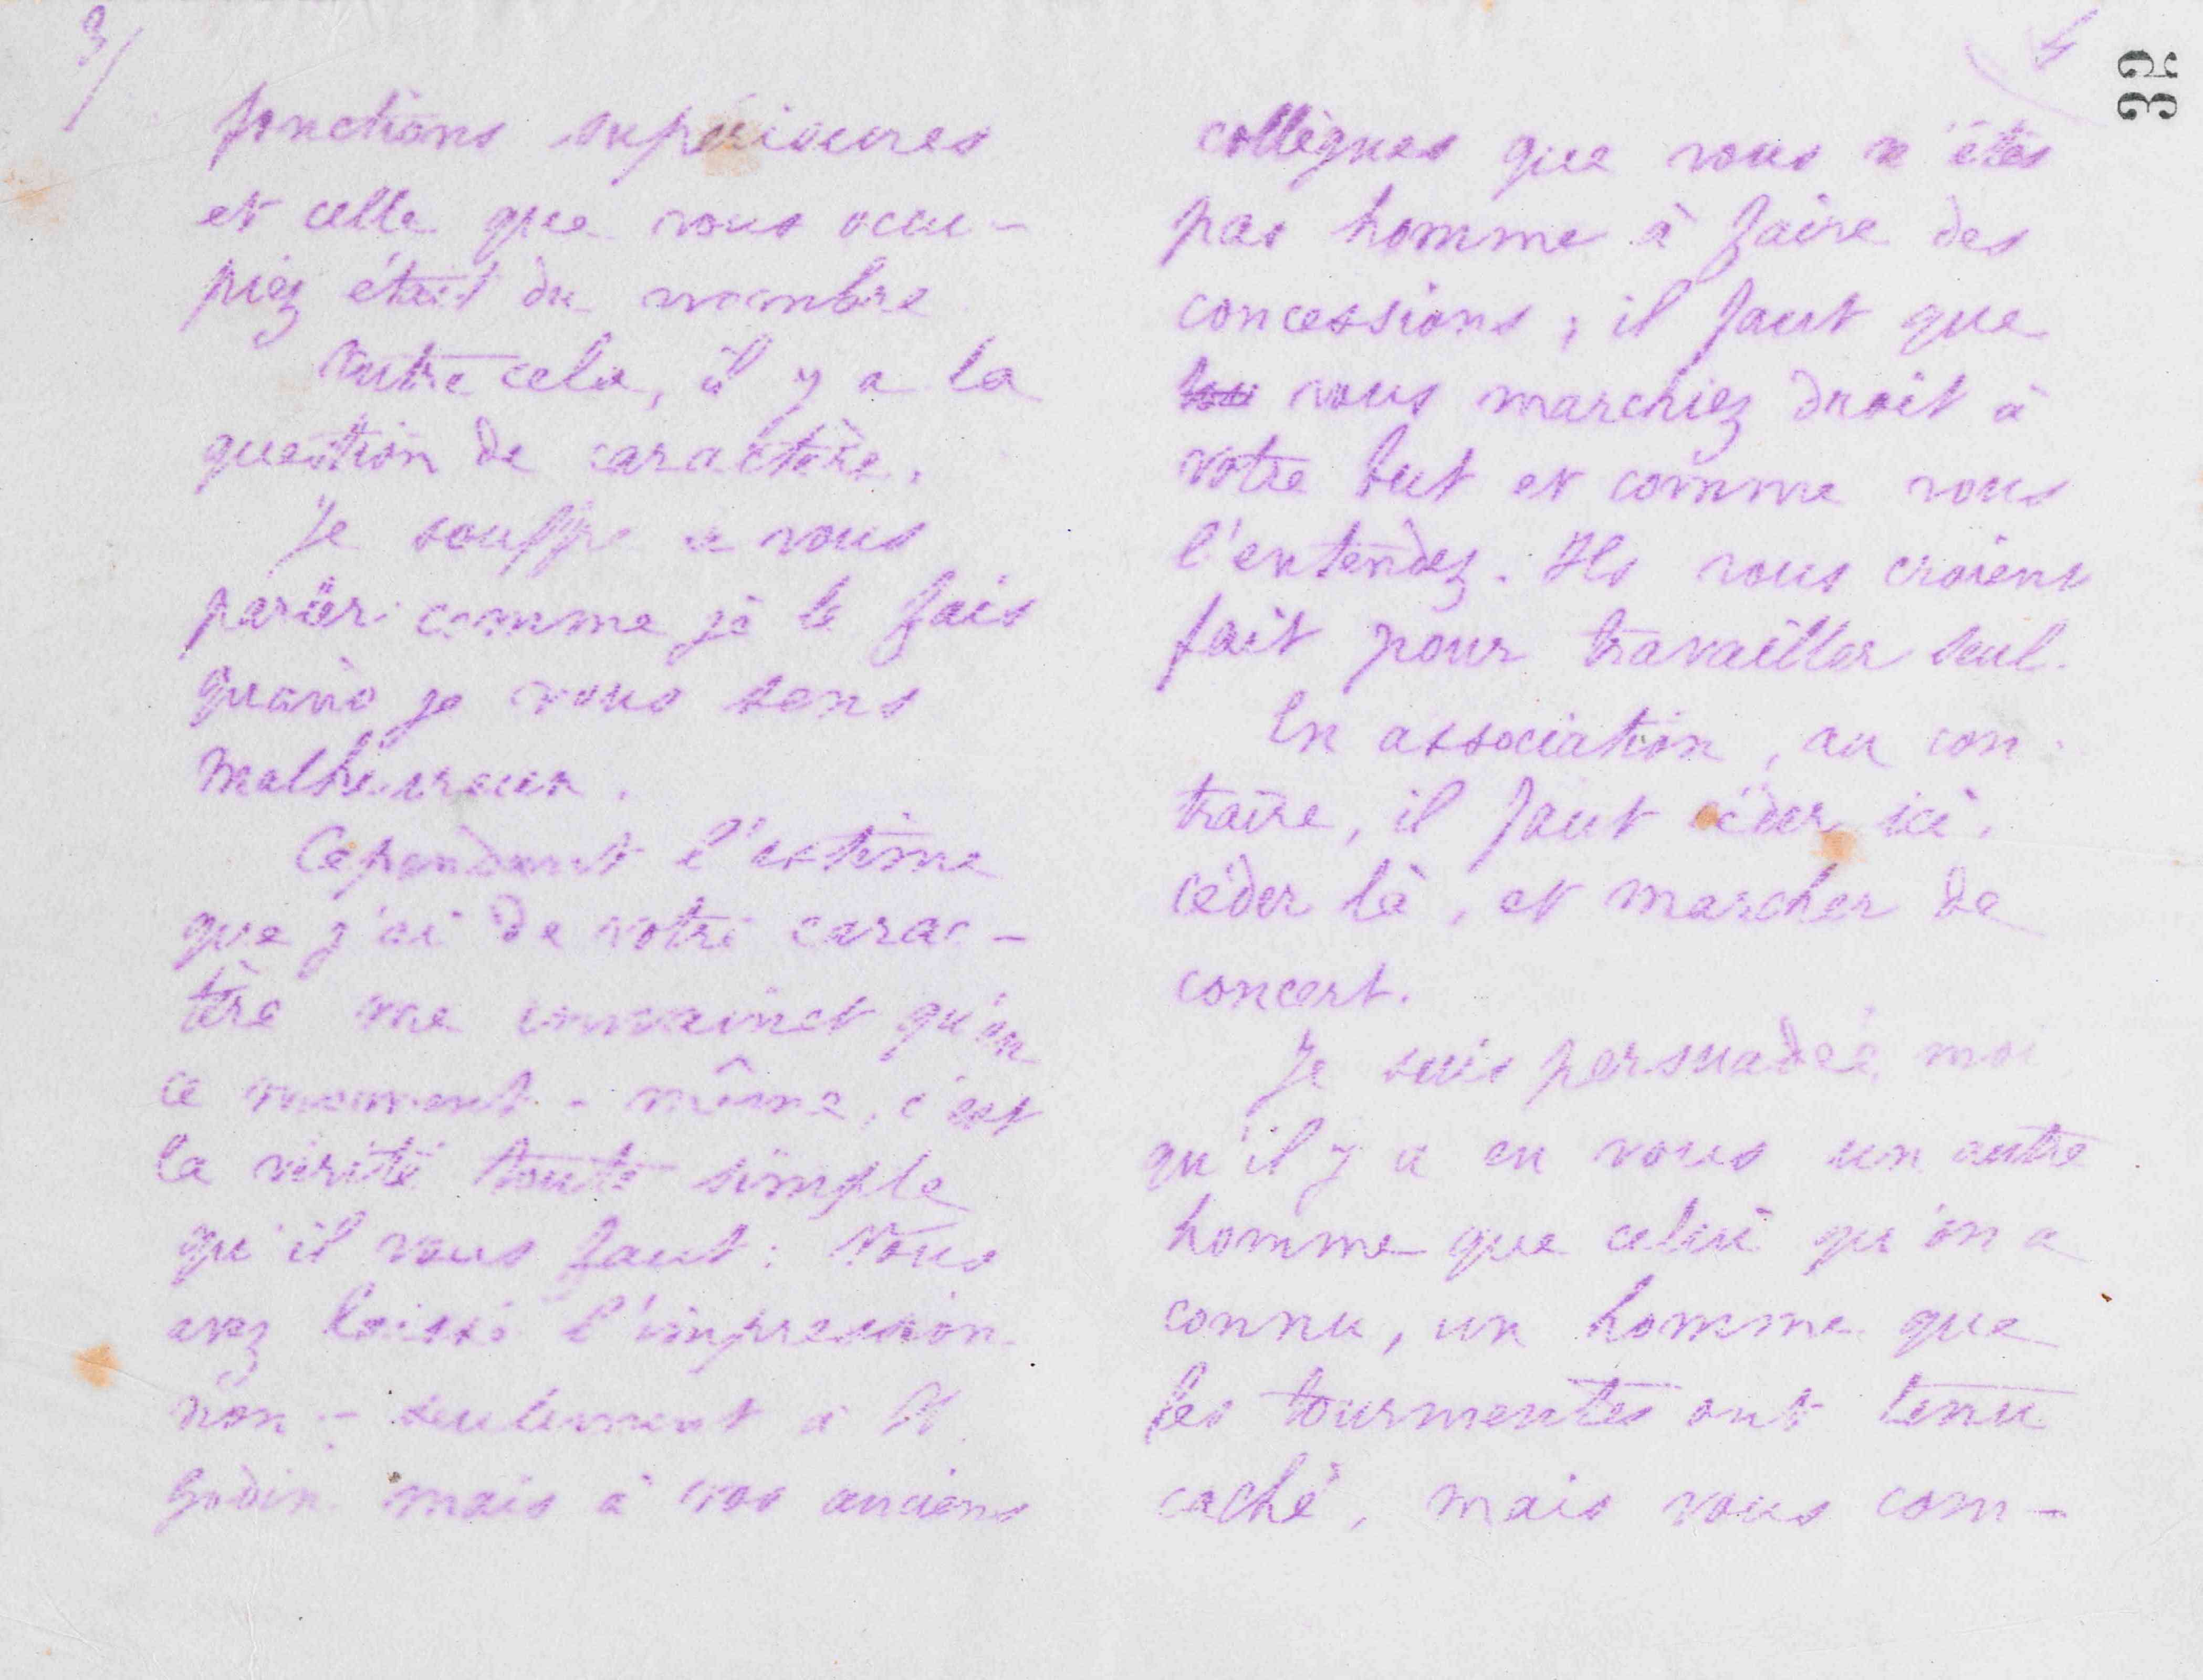 3/
fonctions supérieures
et celle que vous occu-
piez était du nombre
Outre cela, il y a la
question de caractère.
Je souffre à vous
parler comme je le fais
quand je vous sens
malheureux.
Cependant l'estime
que j'ai de votre carac-
tère me convainct qu'en
ce moment-même, c'est
la vérité toute simple
qu'il vous faut: Vous
avez laissé l'impression
non-seulement à M.
Godin mais à vos anciens
4
32
collègues que vous n'êtes
pas homme à faire des
concessions, il faut que
vous marchiez droit à
votre but et comme vous
l'entendez. Ils vous croient
fait pour travailler seul.
En association, au con-
traire, il faut céder ici,
céder là, et marcher de
concert.
Je suis persuadée, moi
qu'il y a en vous un autre
homme que celui qu'on a
connu, un homme que
les tourmentes ont tenu
caché, mais vous com-